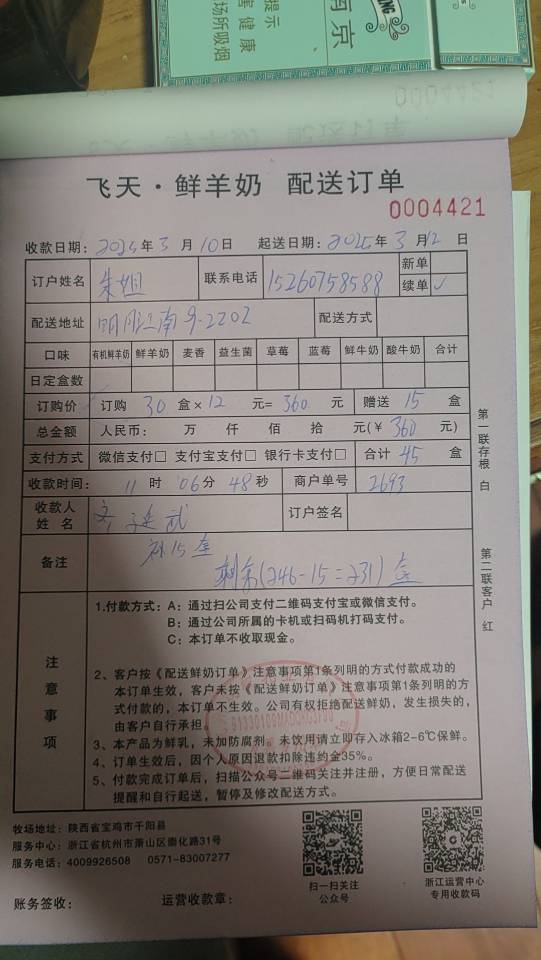 提示
害健康
场所吸烟
南京
0004421
飞天·鲜羊奶 配送订单
0004421
收款日期: 2025年3月10日 起送日期: 2025年3月12日
订户姓名 朱姐 联系电话 15260758588 新单
续单 ✓
配送地址 明月江南9-2202 配送方式
口味 有机鲜羊奶 鲜羊奶 麦香 益生菌 草莓 蓝莓 鲜牛奶 酸牛奶 合计
日定盒数
订购价 订购 30 盒× 12 元= 360 元 赠送 15 盒
总金额 人民币: 万 仟 佰 拾 元(¥ 360 元)
支付方式 微信支付□ 支付宝支付□ 银行卡支付□ 合计 45 盒
收款时间: 11 时 06分 48秒 商户单号 2693
收款人姓名 订户签名
备注 15盒
剩余(246-15=231)盒
第一联存根 白
第二联客户 红
注意事项
1.付款方式: A: 通过扫公司支付二维码支付宝或微信支付。
B: 通过公司所属的卡机或扫码机打码支付。
C: 本订单不收取现金。
2、客户按《配送鲜奶订单》注意事项第1条列明的方式付款成功的
本订单生效，客户未按《配送鲜奶订单》注意事项第1条列明的方
式付款的，本订单不生效。公司有权拒绝配送鲜奶，发生损失的，
由客户自行承担。
3、本产品为鲜乳，未加防腐剂。未饮用请立即存入冰箱2-6℃保鲜。
4、订单生效后，因个人原因退款扣除违约金35%。
5、付款完成订单后，扫描公众号二维码关注并注册，方便日常配送
提醒和自行起送，暂停及修改配送方式。
牧场地址: 陕西省宝鸡市千阳县
服务中心: 浙江省杭州市萧山区崇化路31号
服务电话: 4009926508 0571-83007277
扫一扫关注
公众号
浙江运营中心
专用收款码
账务签收: 运营收款章: